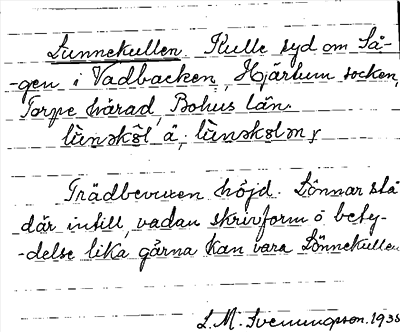 Lunnekullen. Kulle syd om Så-
-gen i Vadbacken, Hjärtum socken,
Torpe härad, Bohus län.
lùnəkəl å; lùnəkələn,
Trädbevuxen höjd. Lönnar stå
där intill, vadan skrivform o bety-
-delse lika gärna kan vara Lönnekullen
L.M. Svenungsson. 1935